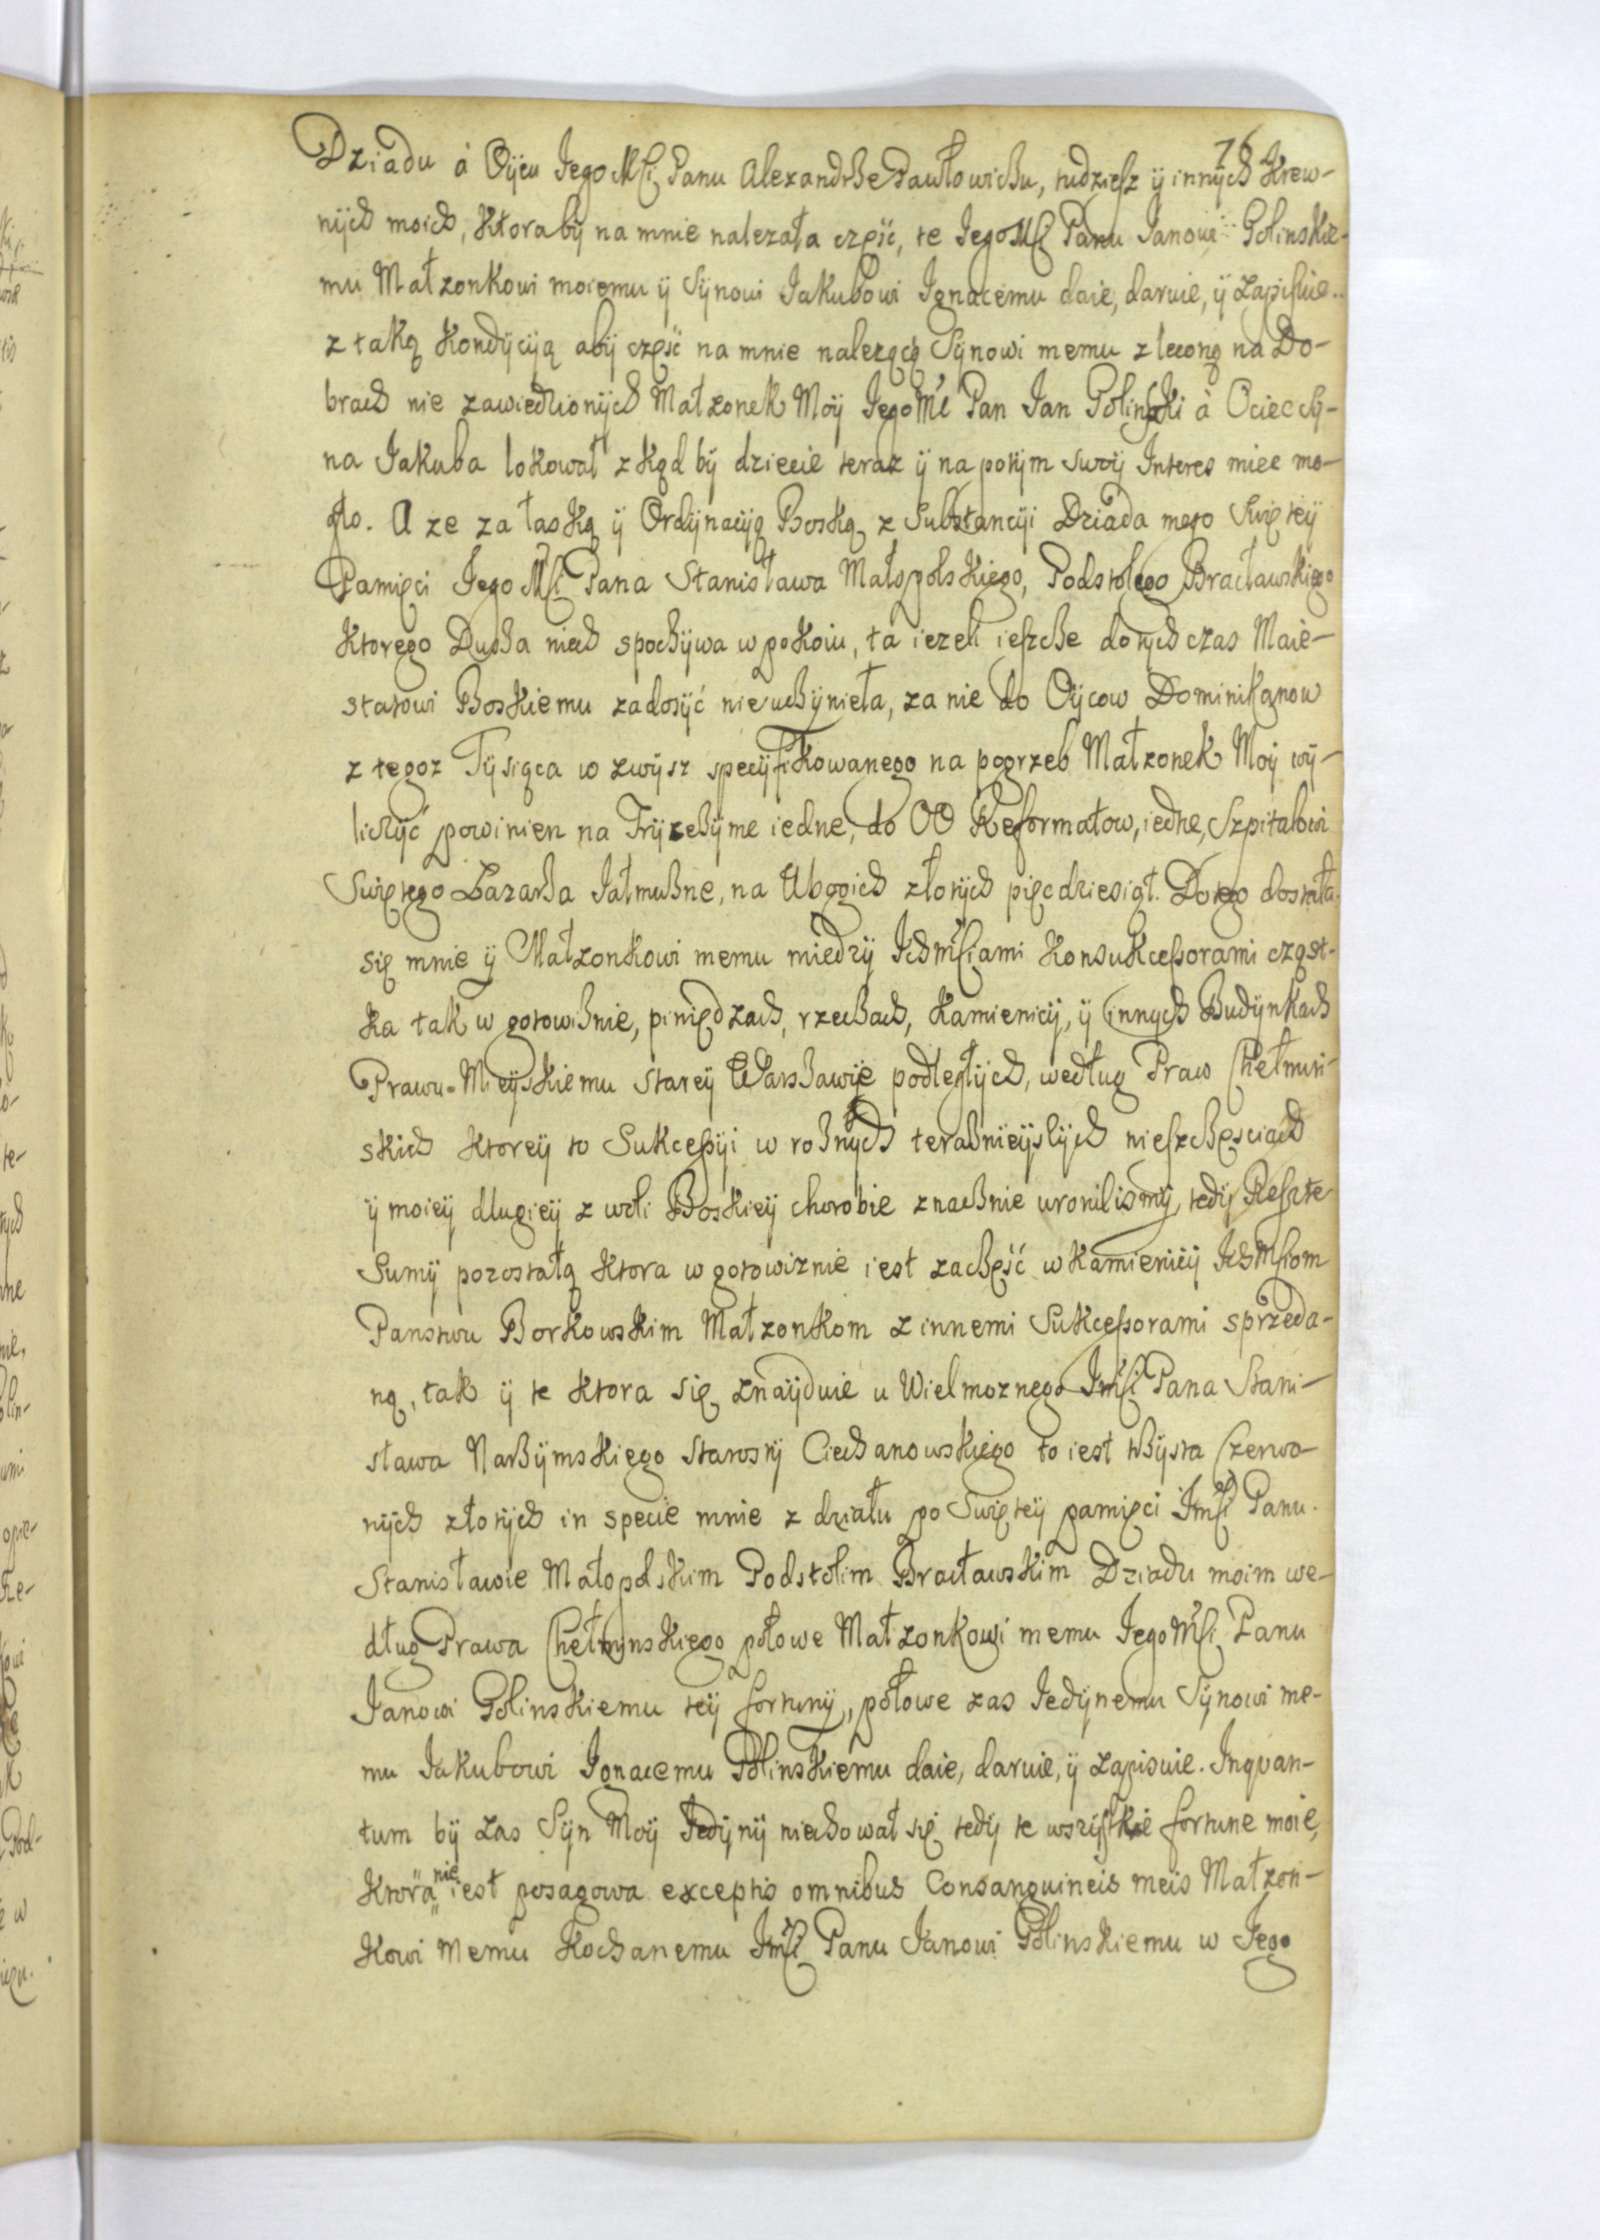 76
Dziadu á Oÿcu Jego Mści Panu Alexandrze Pawłowiczu, tudziesz ÿ innÿch Krew-
nÿch moich, Ktorabÿ na mnie nalezała część, te Jego Mści Panu Janowi Golinskie-
mu Małzonkowi moiemu ÿ Sÿnowi Jakubowi Ignacemu daie, daruie, ÿ zapisuie
z taką Kondÿcÿią abÿ część na mnie nalezącą Sÿnowi memu zleconą na Do-
brach nie zawiedzionÿch Małzonek Moÿ Jego Mć Pan Jan Golinski á Ociec Sÿ-
na Jakuba lokował z kąd bÿ dziecie teraz ÿ na potÿm swoÿ Interes miec mo-
gło. A ze za łaską ÿ Ordÿnacÿią Boską z Substancÿi Dziada mego Swięteÿ
Pamięci Jego Mści Pana Stanisława Małopolskiego, Podstolego Bracławskiego
Ktorego Dusza niech spoczÿwa w pokoiu, ta iezeli ieszcze dotÿchczas Maie-
statowi Boskiemu zadosÿć nie uczÿnieła, za nie do Oÿcow Dominikanow
z tegoz Tÿsiąca w zwÿsz specÿfikowanego na pogrzeb Małzonek Moÿ wÿ-
liczÿć powinien na Trÿzezÿme iedne, do OO Reformatow, iedne, Szpitalowi
Swiętego Łazarza Jałmuzne, na Ubogich złotÿch pięcdziesiąt. Do tego dostała
się mnie ÿ Małzonkowi memu miedzÿ Ichmściami Konsukcessorami cząst-
ka tak w gotowiznie, piniędzach, rzeczach, Kamienicÿ, ÿ innÿch Budÿnkach
Prawu-Mieÿskiemu Stareÿ Warszawie podległÿch, według Praw Chełmin-
skich Ktoreÿ to Sukcessÿi w roznÿch terazniëÿszÿch nieszczęsciach
ÿ moieÿ długieÿ z woli Boskieÿ chorobie znacznie uronilismÿ, tedÿ Resztę
Summÿ pozostałą Ktora w gotowiznie iest zaczęść w Kamienicÿ Ichmściom
Panstwu Borkowskim Małzonkom z innemi Sukcessorami sprzeda-
ną, tak ÿ te Ktora się znaÿduie u Wielmoznego Jmści Pana Stani-
sława Narzÿmskiego Starostÿ Ciechanowskiego to iest trzÿsta Czerwo-
nÿch złotÿch in specie mnie z działu po Swięteÿ pamięci Jmści Panu
Stanisławie Małopolskim Podstolim Bracławskim Dziadu moim we-
dług Prawa Chełmÿnskiego połowe Małzonkowi memu Jego Mści Panu
Janowi Golinskiemu teÿ fortunÿ, połowe zas Jedÿnemu Sÿnowi me-
mu Jakubowi Ignacemu Golinskiemu daie, daruie, ÿ zapisuie. Inquan-
tum bÿ zas Sÿn Moÿ Jedÿnÿ niechował się tedÿ te wszÿstkie fortune moie,
Ktora nie iest posagowa exceptis omnibus Consanguineis meis Małzon-
Kowi Memu Kochanemu Jmści Panu Janowi Golinskiemu w Jego